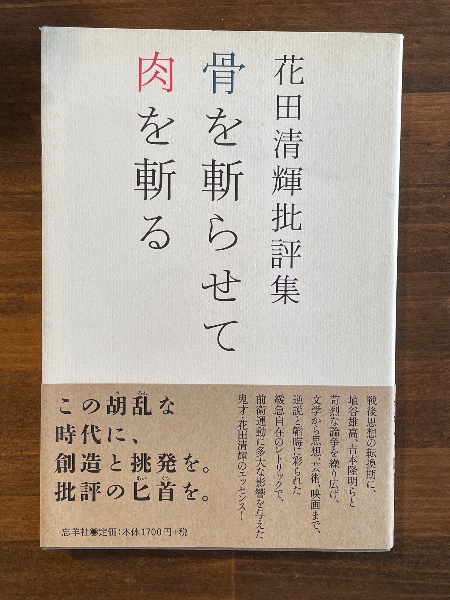 花田清輝批評集
骨を斬らせて
肉を斬る
戦後思想の転換期に、
埴谷雄高、吉本隆明らと
苛烈な論争を繰り広げ、
文学から思想、芸術、映画まで、
逆説と韜晦に彩られた
緩急自在のレトリックで、
前衛運動に多大な影響を与えた
鬼才・花田清輝のエッセンス!
この胡乱な
時代に、
創造と挑発を。
批評の匕首を。
忘羊社●定価:本体1700円+税